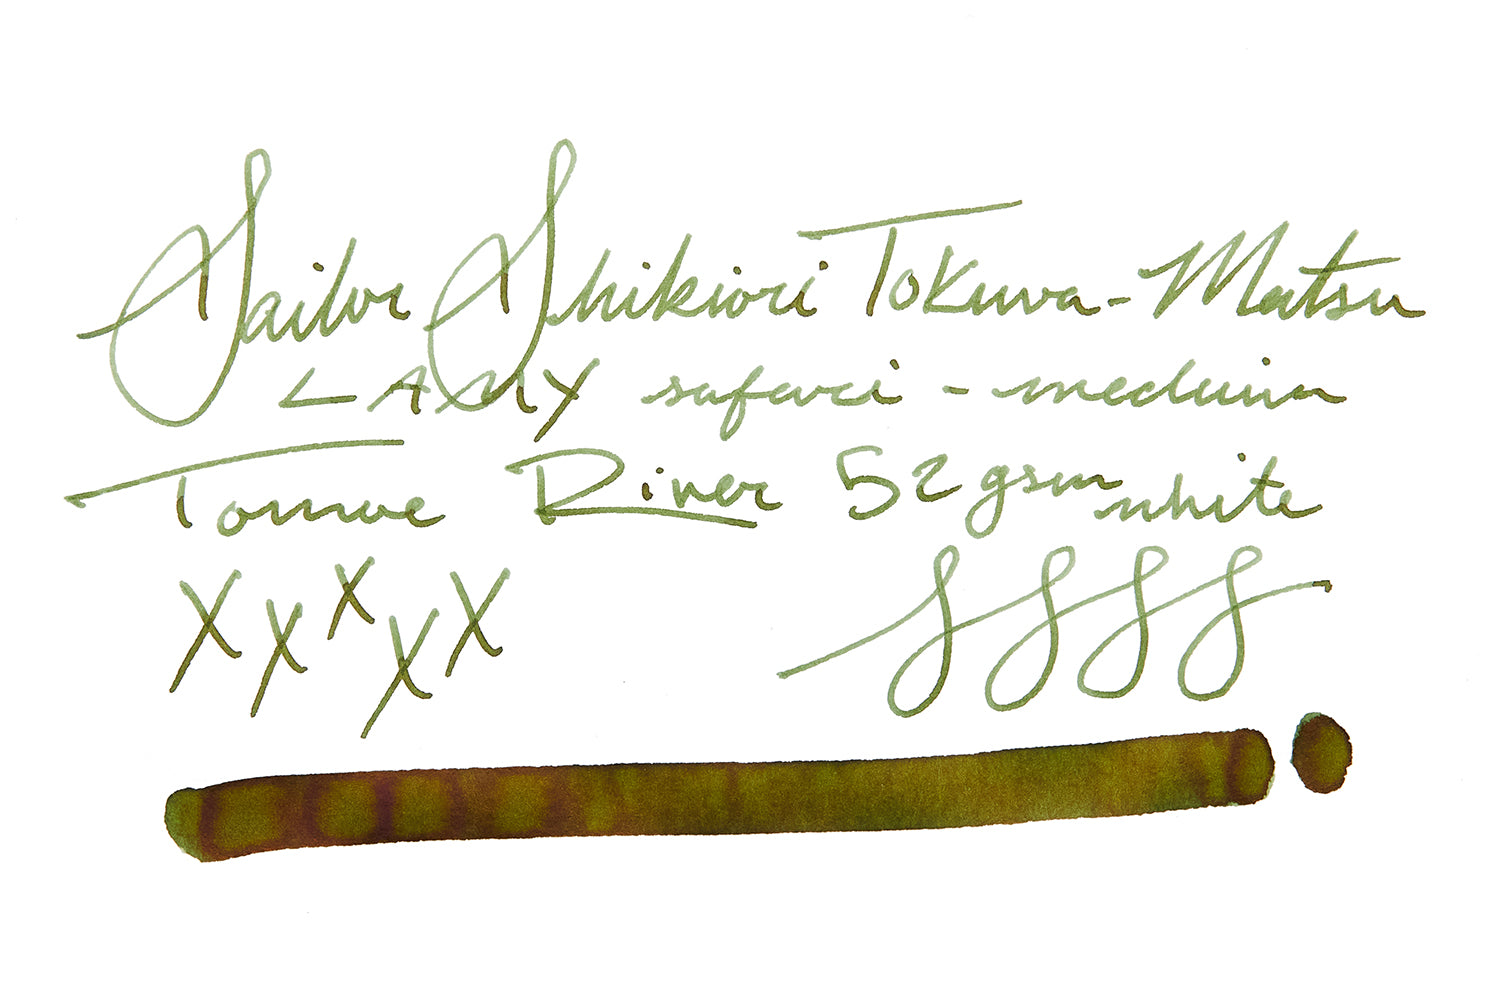 Sailor Shikiori Tokiwa-Matsu
LAMY safari - medium
Tomoe River 52gsm white
X X X X X